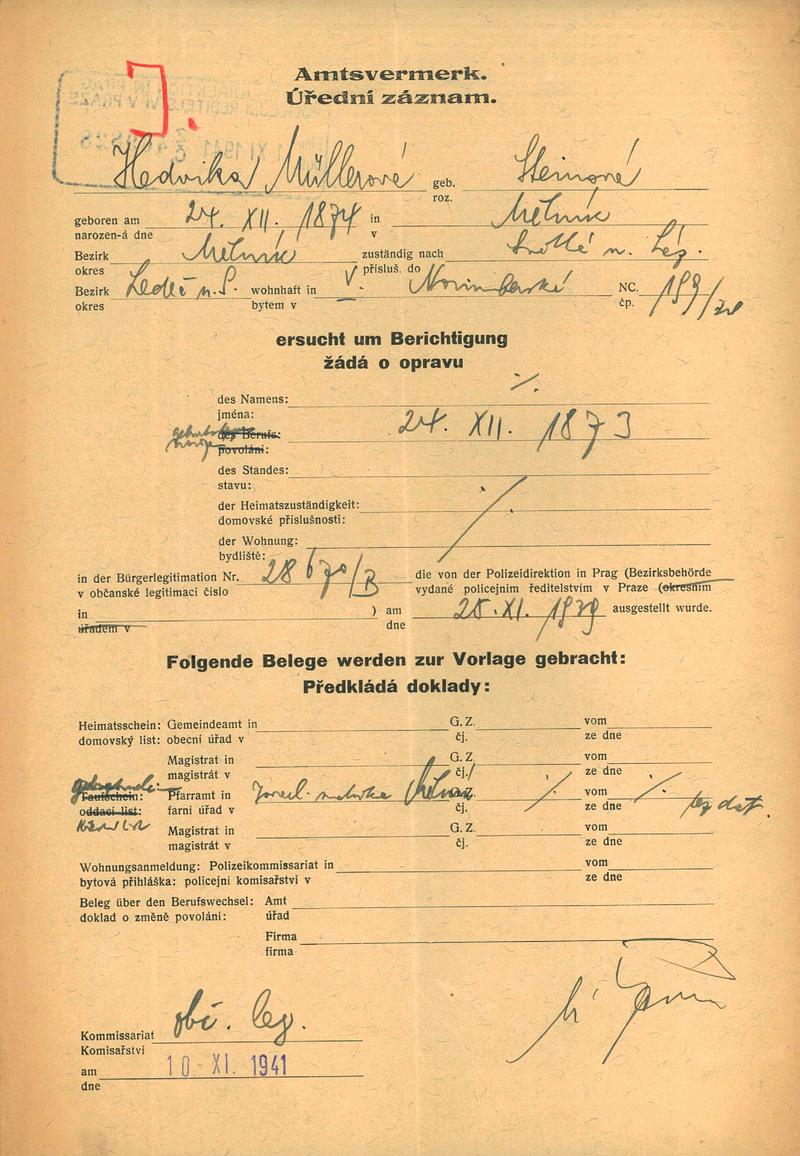 Amtsvermerk.
Úřední záznam.
J.
Hedvika Müllerové geb. Steinové
roz.
geboren am 24. XII. 1874 in Mělník
narozen-á dne v
Bezirk Mělník zuständig nach Světlé n. Sáz.
okres přísluš. do
Bezirk Ledeč n. S. wohnhaft in V. Norimberské NC. 199/
okres bytem v čp.
ersucht um Berichtigung
žádá o opravu
des Namens: ·/.
jména:
des Berufs: 24. XII. 1873
povolání:
des Standes:
stavu:
der Heimatszuständigkeit: ·/.
domovské příslušnosti:
der Wohnung:
bydliště:
in der Bürgerlegitimation Nr. 28670/B die von der Polizeidirektion in Prag (Bezirksbehörde
v občanské legitimaci číslo vydané policejním ředitelstvím v Praze (okresním
in ) am 28. XI. 1939 ausgestellt wurde.
úřadem v dne
Folgende Belege werden zur Vorlage gebracht:
Předkládá doklady:
Heimatsschein: Gemeindeamt in G. Z. vom
domovský list: obecní úřad v čj. ze dne
Magistrat in G. Z. vom
magistrát v čj. ze dne
Taufschein: Pfarramt in matrika Mělník ·/. vom ·/.
oddací list: farní úřad v čj. ze dne bez dat.
Magistrat in G. Z. vom
magistrát v čj. ze dne
Wohnungsanmeldung: Polizeikommissariat in vom
bytová přihláška: policejní komisařství v ze dne
Beleg über den Berufswechsel: Amt
doklad o změně povolání: úřad
Firma
firma
Kommissariat obč. leg.
Komisařství
am 10. XI. 1941
dne